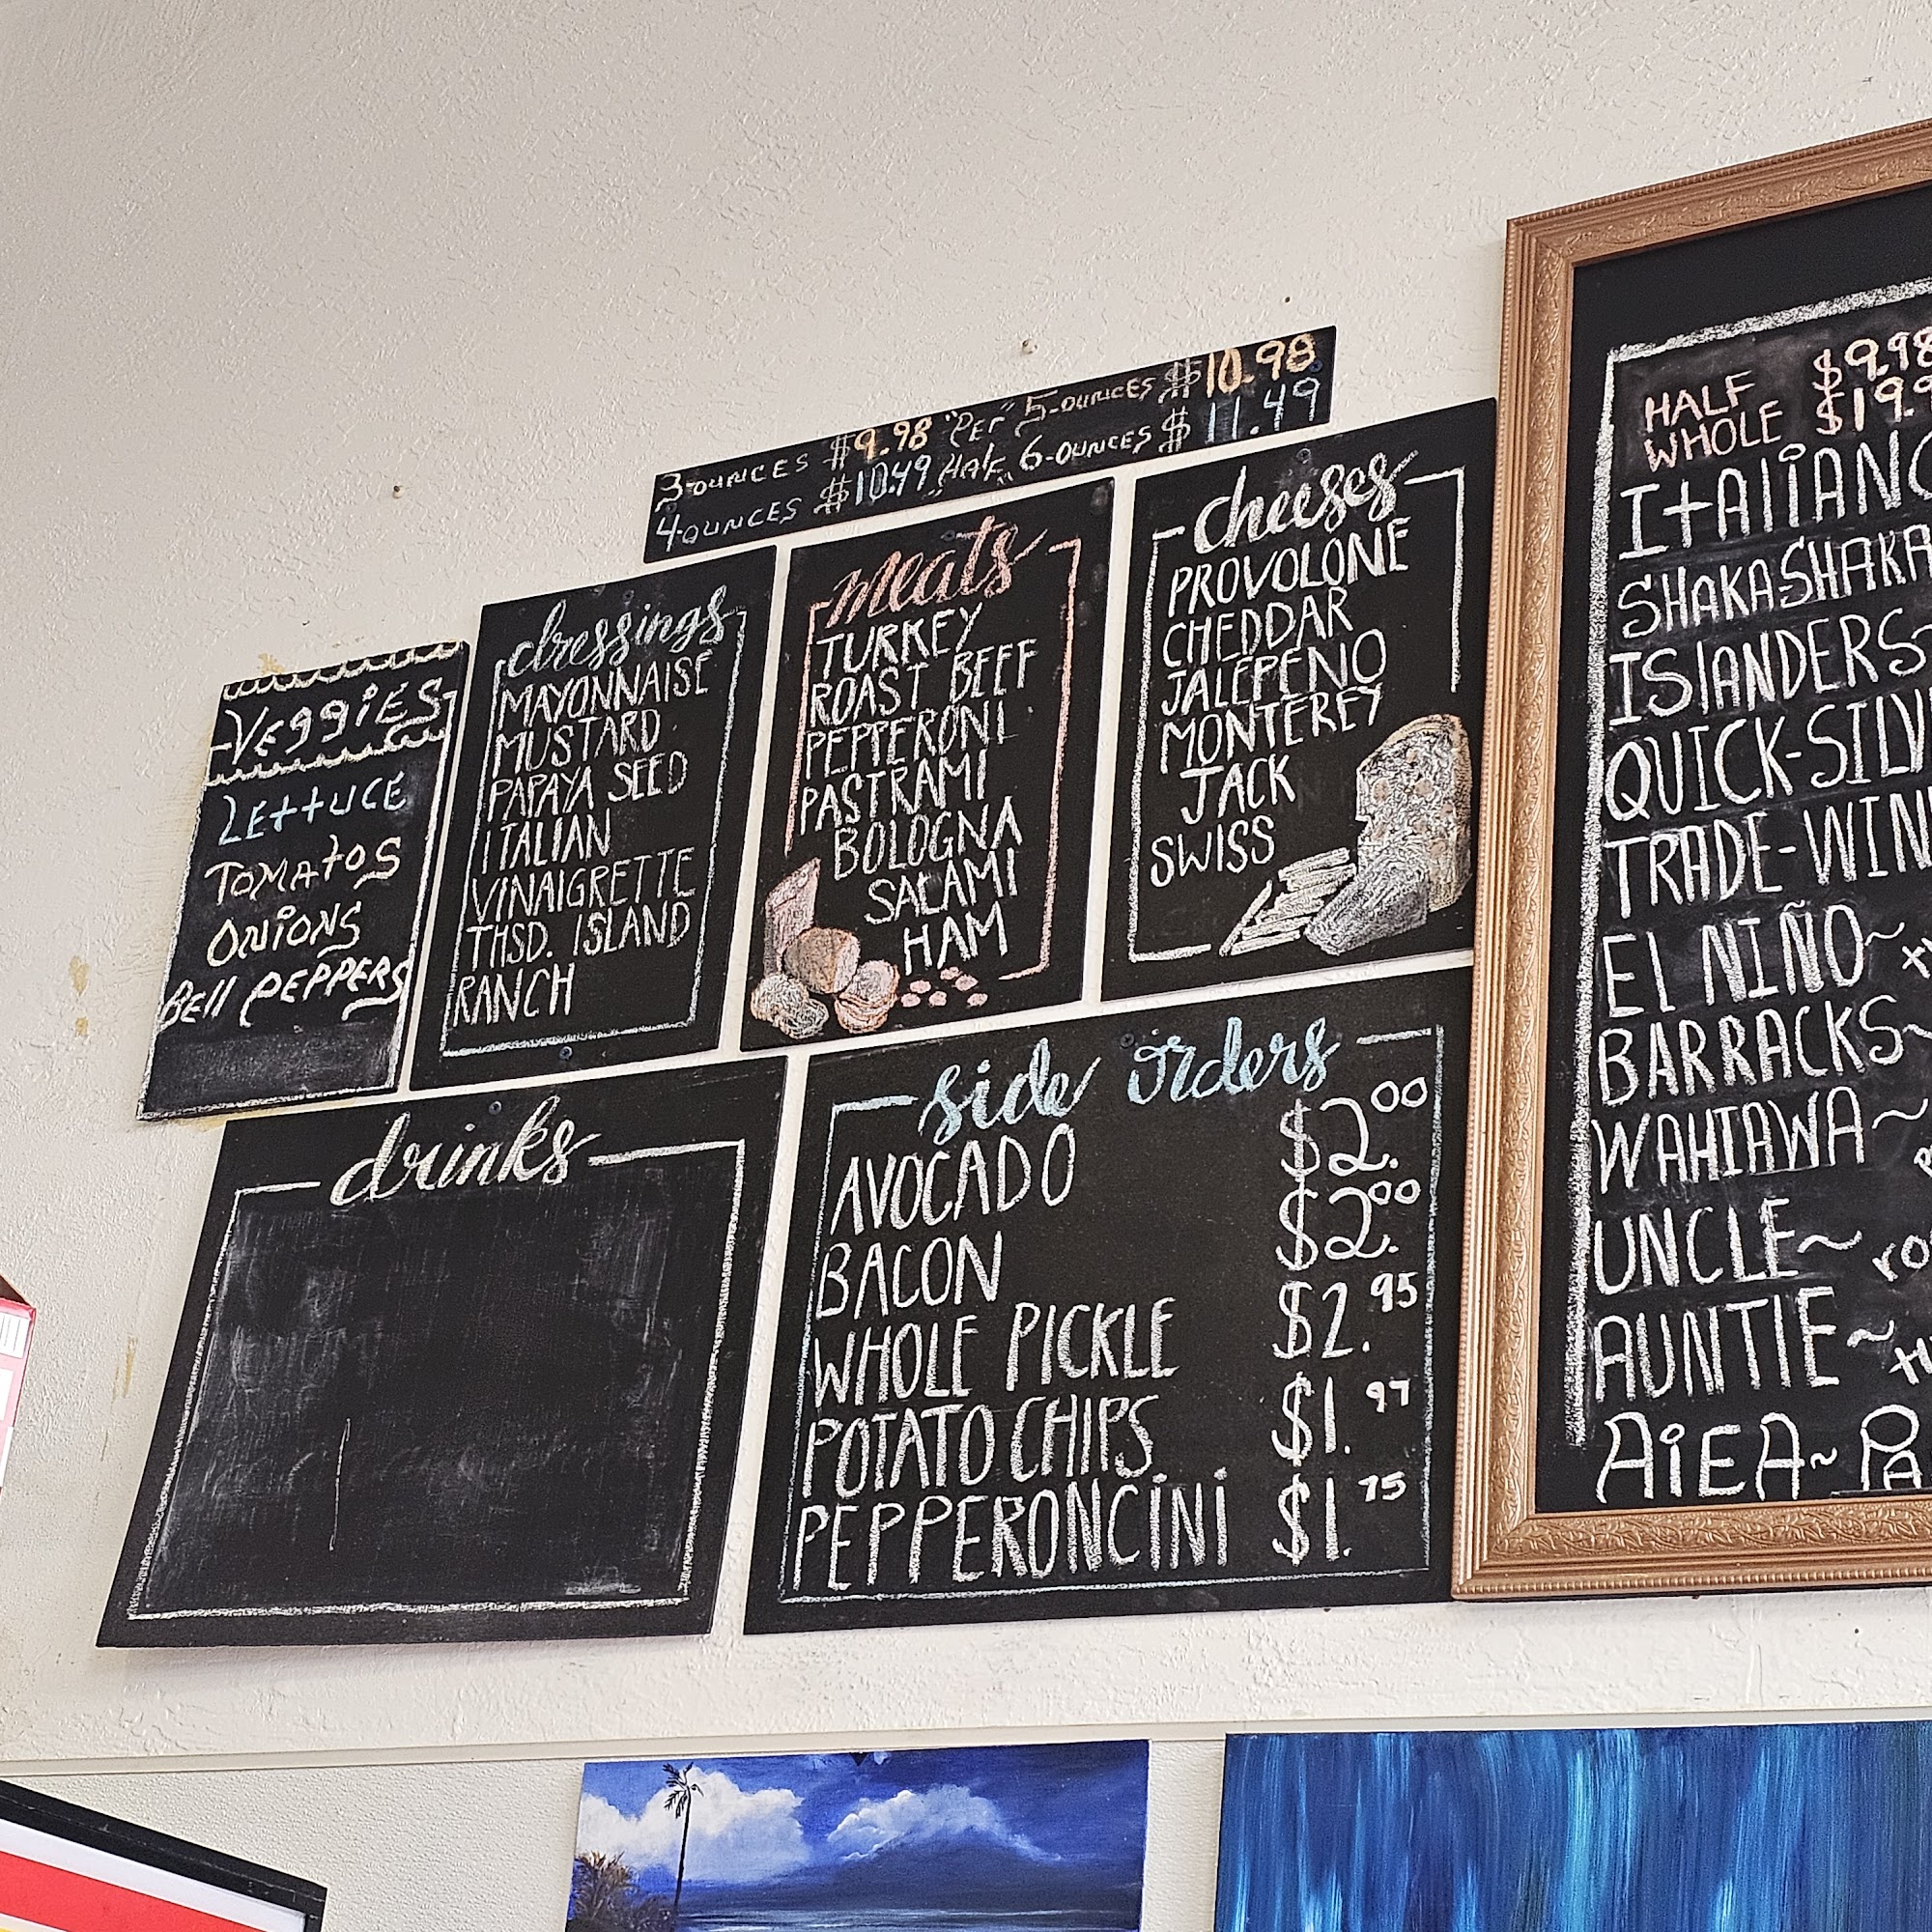 3-OUNCES $9.98 "PER" 5-OUNCES $10.98
4-OUNCES $10.49 "HALF" 6-OUNCES $11.49
VEGGIES
LETTUCE
TOMATOS
ONIONS
BELL PEPPERS
dressings
MAYONNAISE
MUSTARD
PAPAYA SEED
ITALIAN
VINAIGRETTE
THSD. ISLAND
RANCH
meats
TURKEY
ROAST BEEF
PEPPERONI
PASTRAMI
BOLOGNA
SALAMI
HAM
cheeses
PROVOLONE
CHEDDAR
JALEPENO
MONTEREY
JACK
SWISS
drinks
side orders
AVOCADO $2.00
BACON $2.00
WHOLE PICKLE $2.95
POTATO CHIPS $1.97
PEPPERONCINI $1.75
HALF $9.98
WHOLE $19.9
ITALIANO
SHAKA SHAKA
ISLANDERS
QUICK-SILV
TRADE-WIN
EL NIÑO~
BARRACKS~
WAHIAWA~
UNCLE~ ro
AUNTIE~
AIEA~